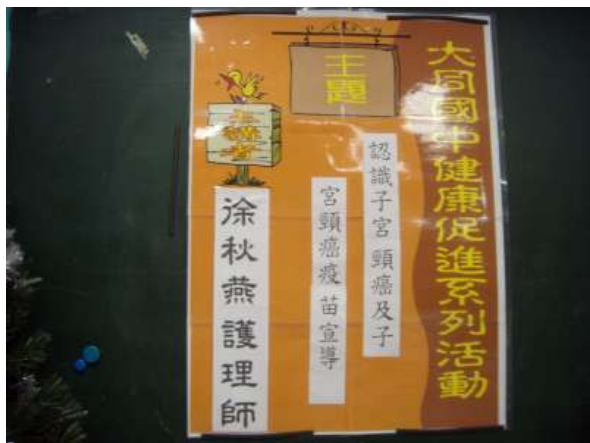 大同國中健康促進系列活動
主題
認識子宮頸癌及子
宮頸癌疫苗宣導
主講者
徐秋燕護理師